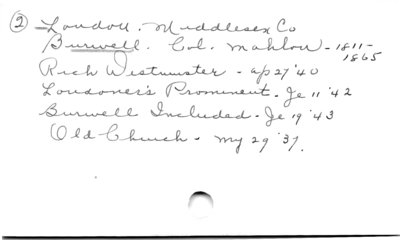 ② London. Middlesex Co
Burwell. Col. Mahlon - 1811-1865
Rich Westminster - ap 27 '40
Londoners Prominent. Je 11 '42
Burwell Included - Je 19 '43
Old Church - my 29 '37.